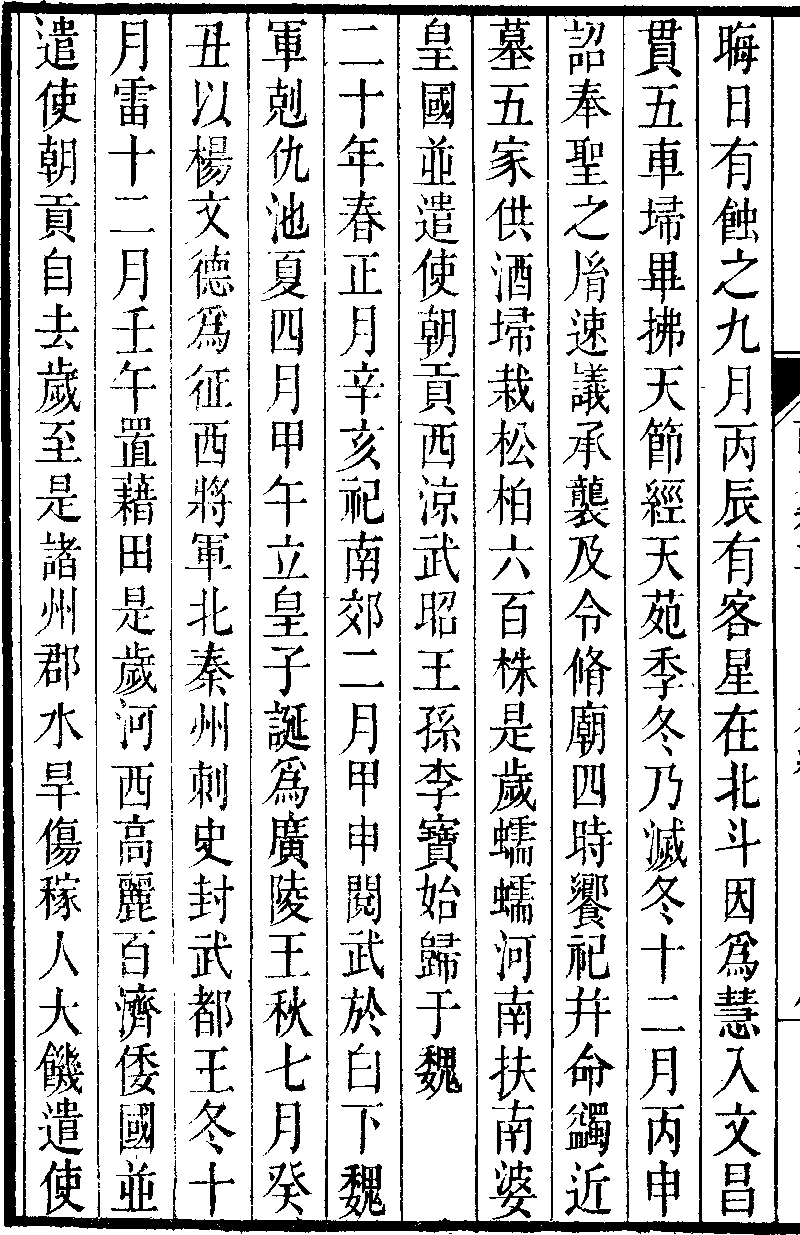 晦日有蝕之九月丙辰有客星在北斗因爲慧入文昌
貫五車埽畢拂天節經天苑季冬乃滅冬十二月丙申
詔奉聖之㣧速議承襲及令脩廟四時饗祀并命蠲近
墓五家供酒埽栽松柏六百株是歲蠕蠕河南扶南婆
皇國並遣使朝貢西涼武昭王孫李寶始歸于魏
二十年春正月辛亥祀南郊二月甲申閱武於白下魏
軍剋仇池夏四月甲午立皇子誕爲廣陵王秋七月癸
丑以楊文德爲征西將軍北秦州刺史封武都王冬十
月雷十二月壬午置藉田是歲河西高麗百濟倭國並
遣使朝貢自去歲至是諸州郡水旱傷稼人大饑遣使